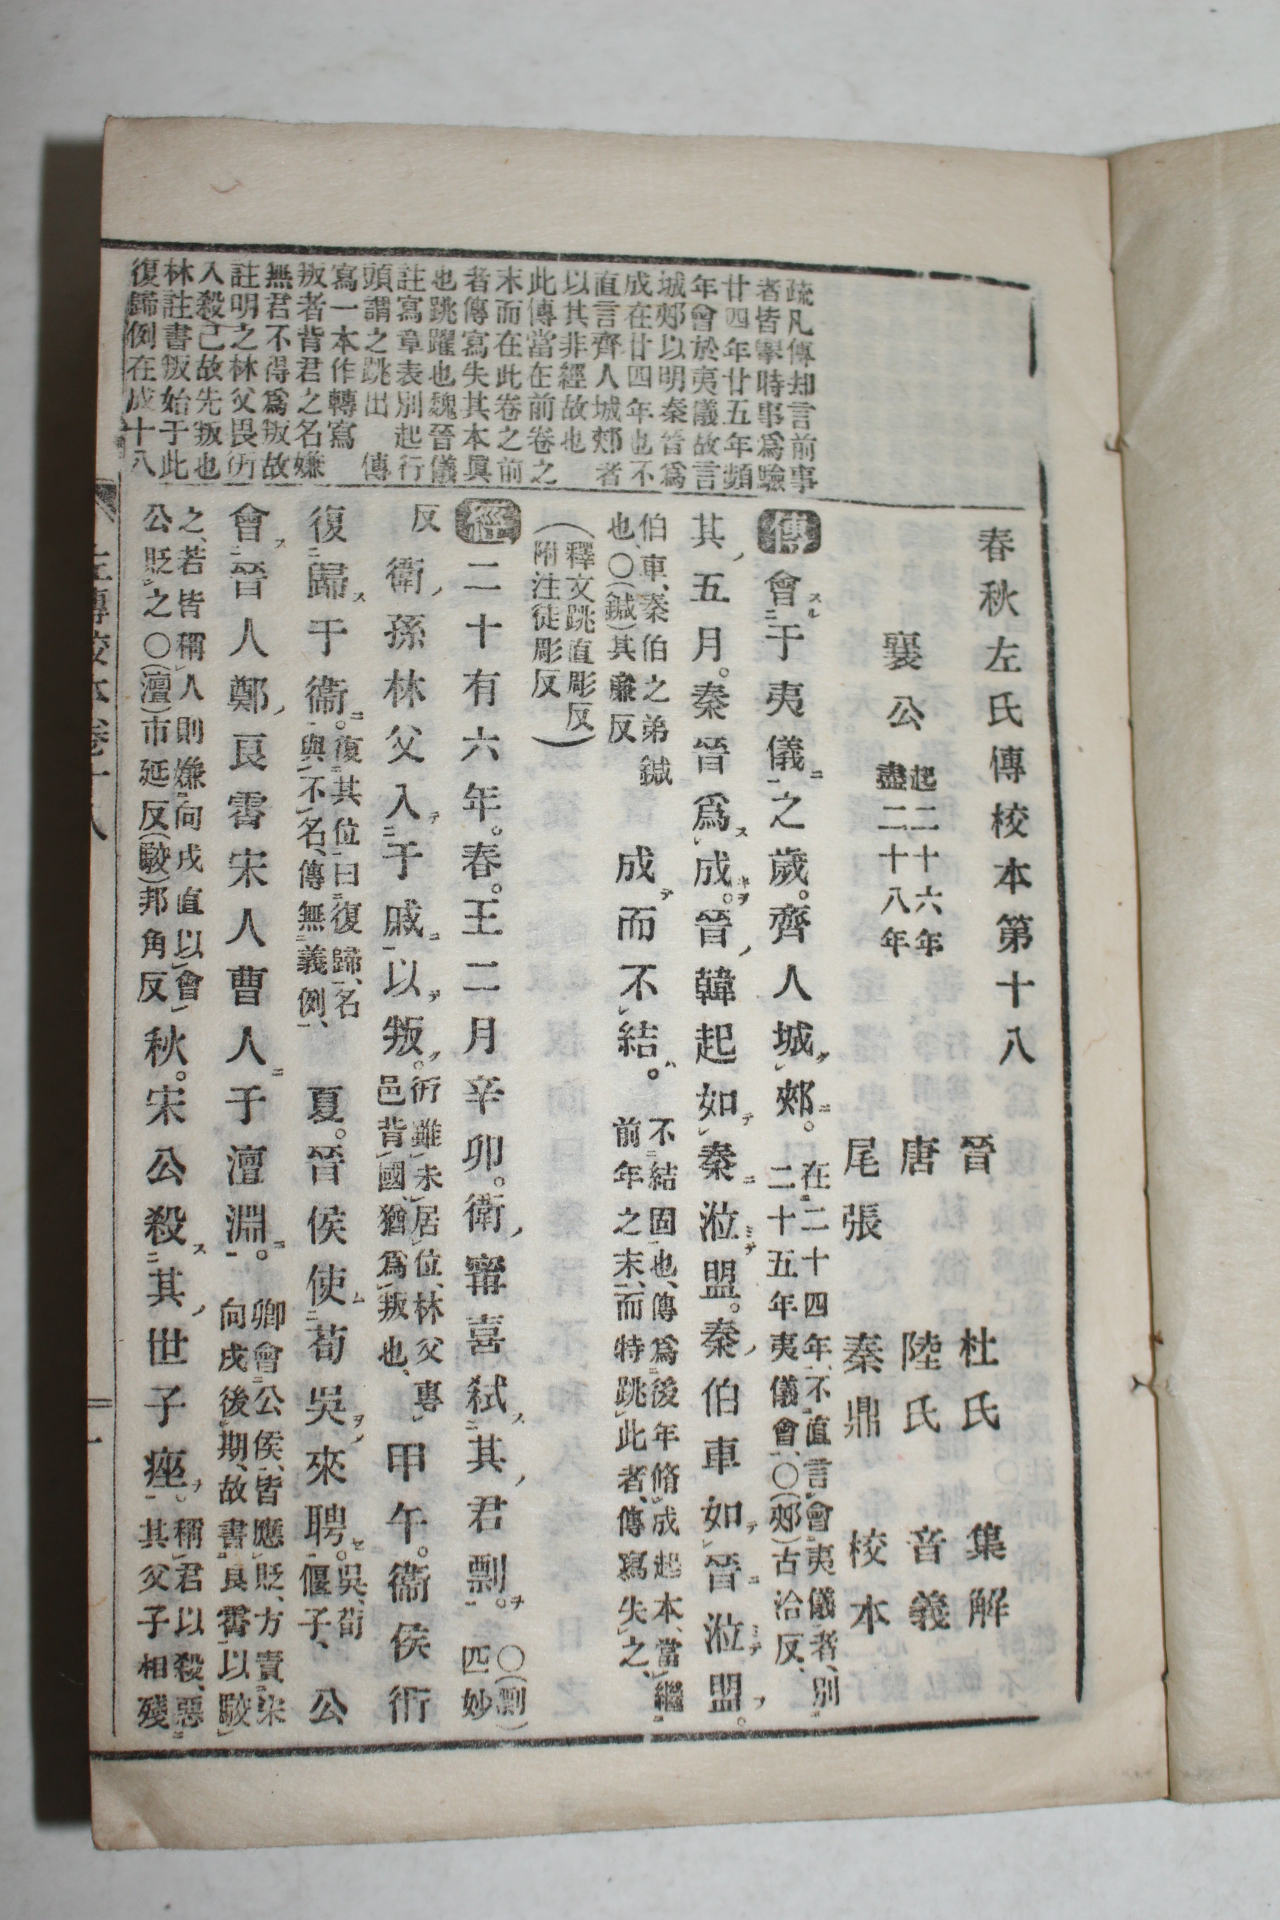 春秋左氏傳校本第十八
襄公 起二十六年 盡二十八年
晉 杜氏 集解
唐 陸氏 音義
尾張 秦鼎 校本
傳會于夷儀之歲。齊人城郟。在二十四年、不直言會夷儀者、別二十五年夷儀會、○(郟)古洽反、
其五月。秦晉爲成。晉韓起如秦涖盟。秦伯車如晉涖盟。
伯車、秦伯之弟鍼也、○(鍼)其廉反 成而不結。不結固也、傳爲後年脩成起本、當繼前年之末、而特跳此者、傳寫失之、
(釋文跳直彫反)附注徒彫反)
經二十有六年。春。王二月辛卯。衛甯喜弑其君剽。○(剽)匹妙
反 衛孫林父入于戚以叛。衎雖未居位、林父專邑背國、猶爲叛也、 甲午。衞侯衎
復歸于衞。復其位曰復歸、名與不名、傳無義例、 夏。晉侯使荀吳來聘。吳、荀偃子、 公
會晉人鄭良霄宋人曹人于澶淵。卿會公侯、皆應貶、方責宋向戌後期、故書良霄以駮
之、若皆稱人則嫌向戌直以會公貶之○(澶)市延反(駮)邦角反 秋。宋公殺其世子痤。稱君以殺、惡其父子相殘
疏凡傳却言前事
者皆舉時事爲驗
廿四年廿五年頻
年會於夷儀故言
城郟以明秦晉爲
成在廿四年也不
直言齊人城郟者
以其非經故也
此傳當在前卷之
末而在此卷之前
者傳寫失其本眞
也跳躍也魏晉儀
註寫章表別起行
頭謂之跳出 傳
寫一本作轉寫
叛者背君之名嫌
無君不得爲叛故
註明之林父畏衎
入殺己故先叛也
林註書叛始于此
復歸例在成十八
左傳校本卷十八
一